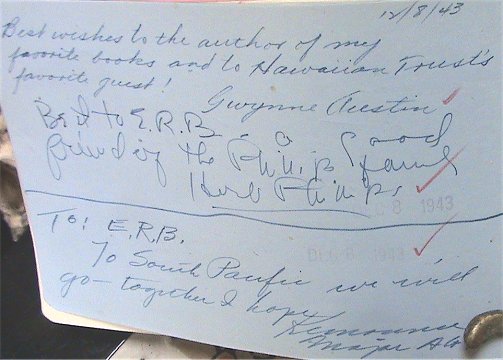 12/8/43
Best wishes to the author of my
favorite books and to Hawaiian Trust's
favorite guest!
Gwynne Austin
Best to E.R.B. - a Good
friend of the Phillips family
Herb Phillips
8 1943
To: E.R.B.
DEC 8 1943
To South Pacific we will
go - together I hope
Major